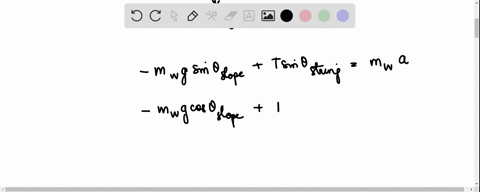 - m_w g sin θ_slope + T sin θ_string = m_w a
- m_w g cos θ_slope + 1